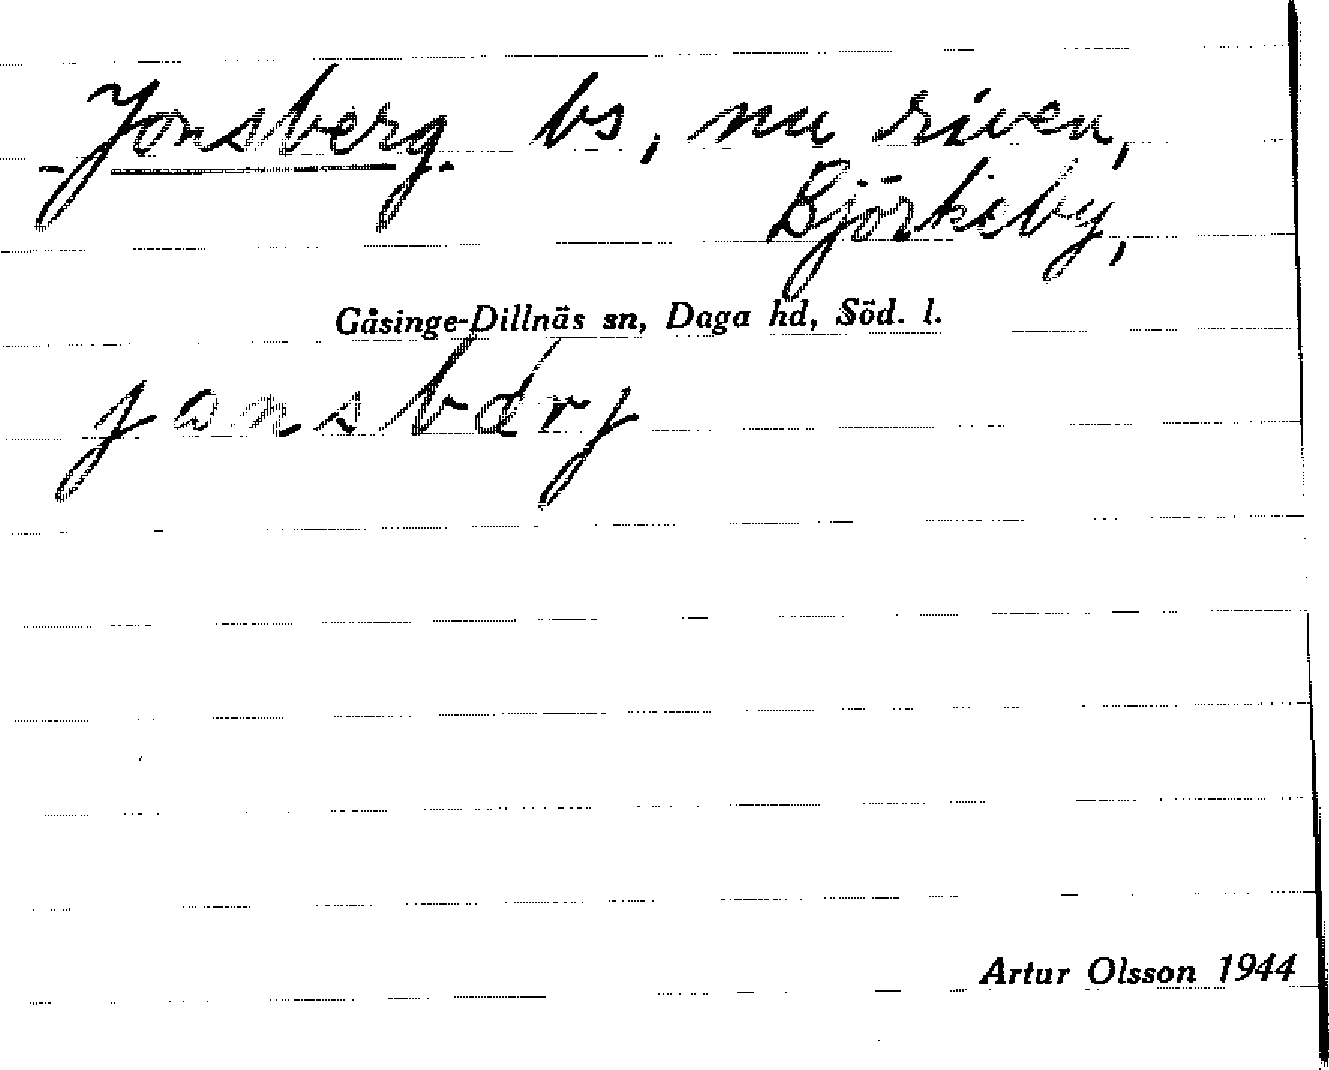 Jonsberg. bs, nu riven,
Björkeby,
Gåsinge-Dillnäs sn, Daga hd, Söd. l.
jonsbárj
Artur Olsson 1944